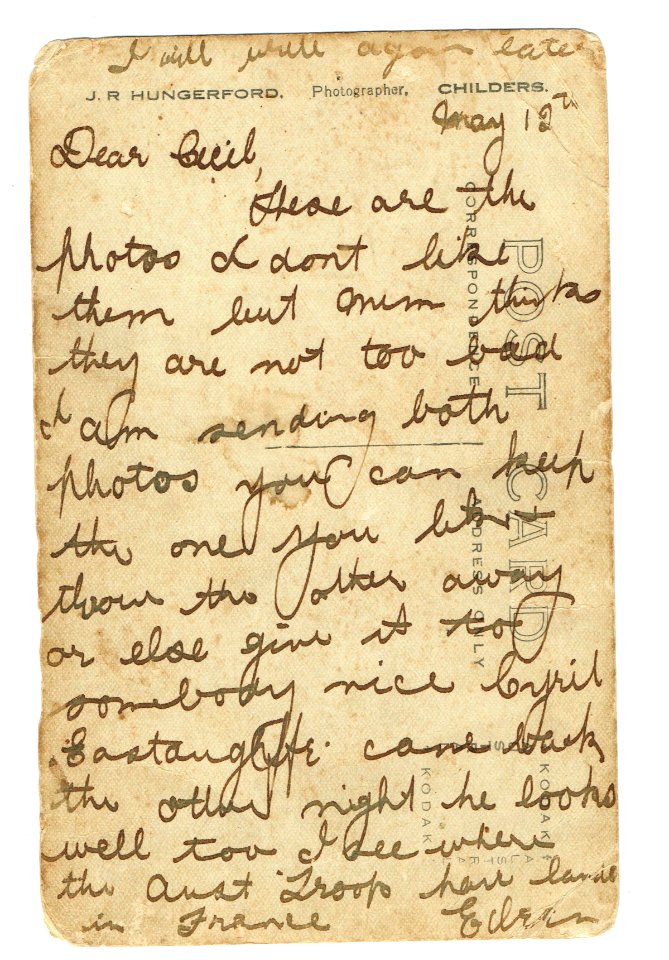 I will write again later
J. R HUNGERFORD. Photographer, CHILDERS.
May 12th
Dear Cecil,
these are the
photos I dont like
them but Mum thinks
they are not too bad
I am sending both
photos you can keep
the one you like &
throw the other away
or else give it to
somebody nice Cyril
Eastaughffe. came back
the other night he looks
well too I see where
the Aust Troop have landed
in France
POST CARD
CORRESPONDENCE
ADDRESS ONLY
KODAK
KODAK